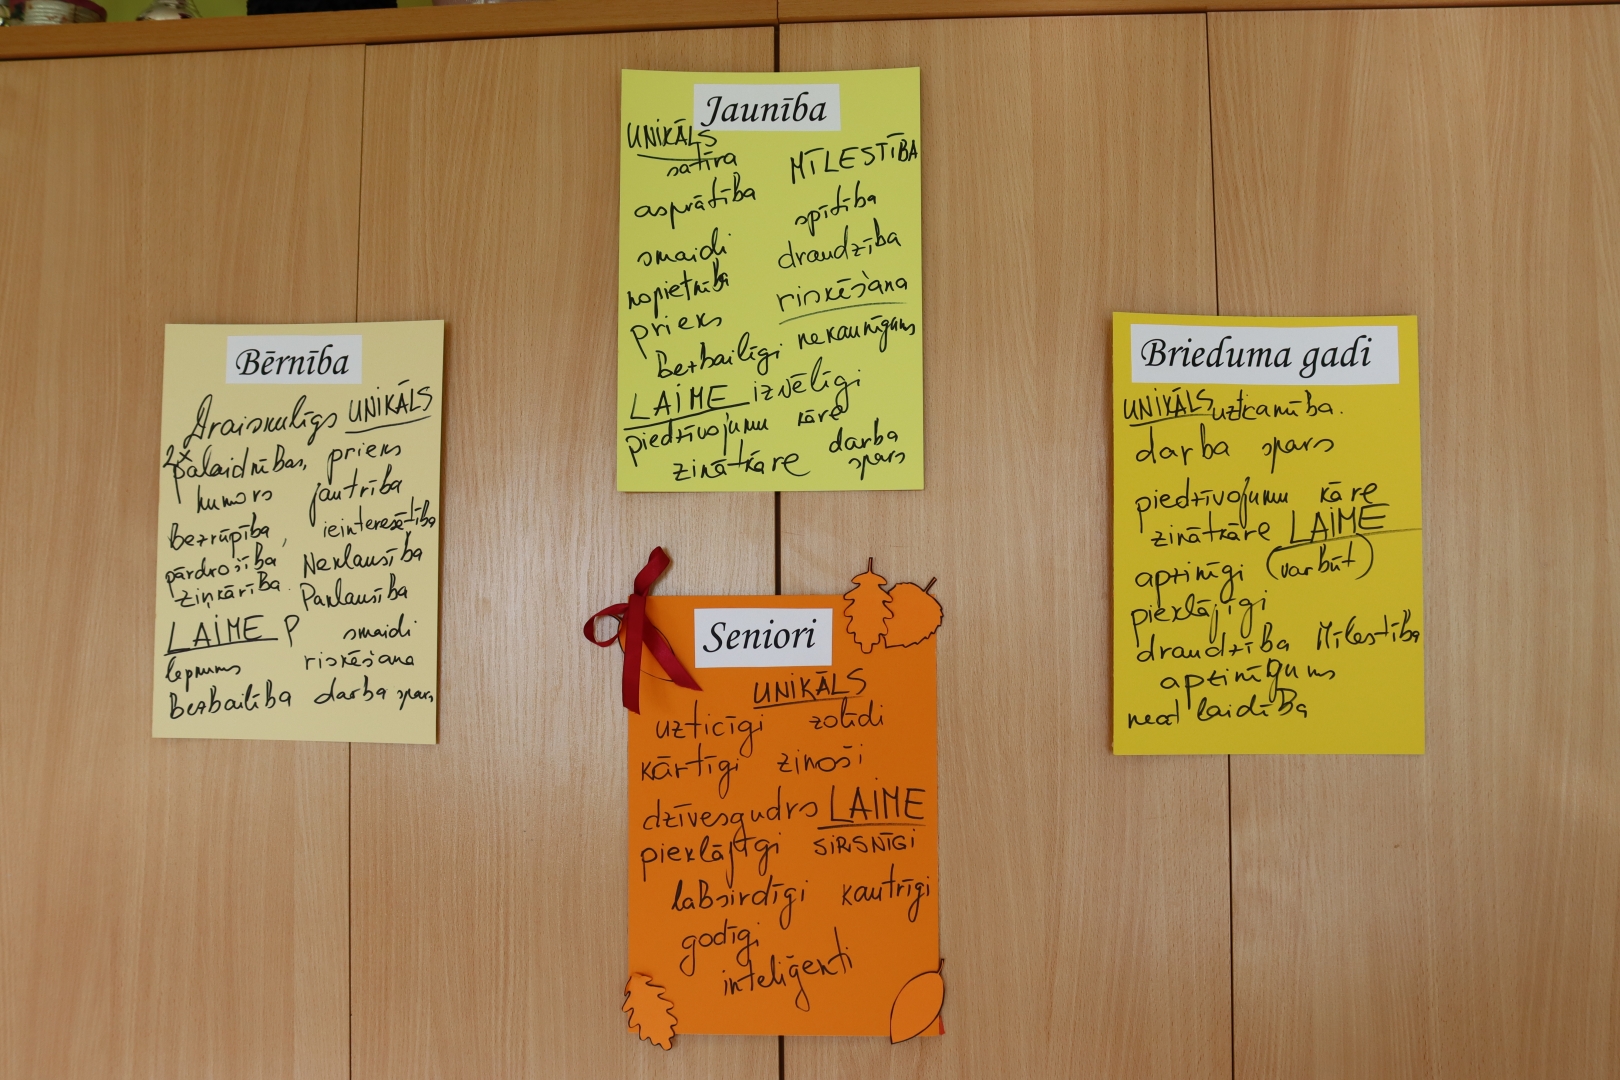 Jaunība
UNIKĀLS
satīra MĪLESTĪBA
asprātība spītība
smaidi draudzība
nopietnība riskēšana
prieks nekaunīgums
bezbailīgi
LAIME izvēlīgi
piedzīvojumu kāre
zinātkāre darba spars
Bērnība
Draiskulīgs UNIKĀLS
2x palaidnības, prieks
humors jautrība
Bezrūpība, ieinteresētība
pārdrošība Neklausība
ziņkārība Paklausība
LAIME P smaidi
lepnums riskēšana
Bezbailība darba spars
Brieduma gadi
UNIKĀLS uzticamība.
darba spars
piedzīvojumu kāre
zinātkāre LAIME
apzinīgi (varbūt)
pieklājīgi
draudzība Mīlestība
apzinīgums
neatlaidība
Seniori
UNIKĀLS
uzticīgi zolīdi
kārtīgi zinoši
dzīvesgudrs LAIME
pieklājīgi SIRSNĪGI
labsirdīgi kautrīgi
godīgi
inteliģenti